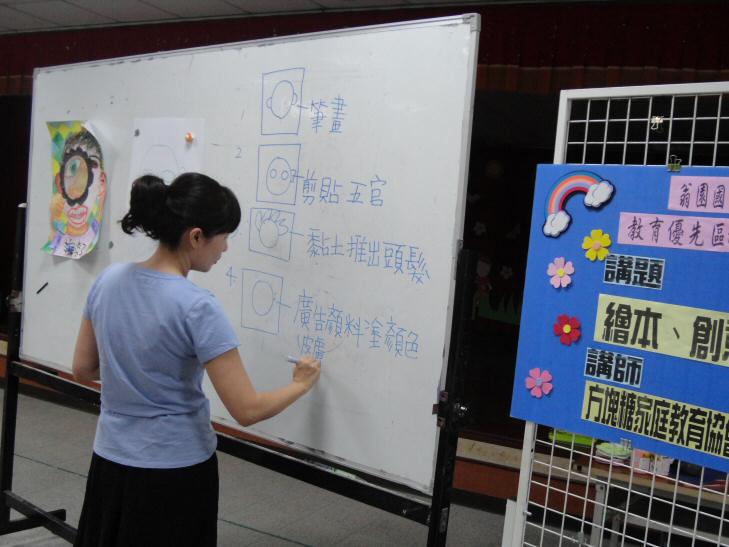 1
筆畫
2
剪貼五官
3
黏土推出頭髮
4.
廣告顏料塗顏色
皮膚
翁園國
教育優先區
講題
繪本、創
講師
方塊糖家庭教育協會